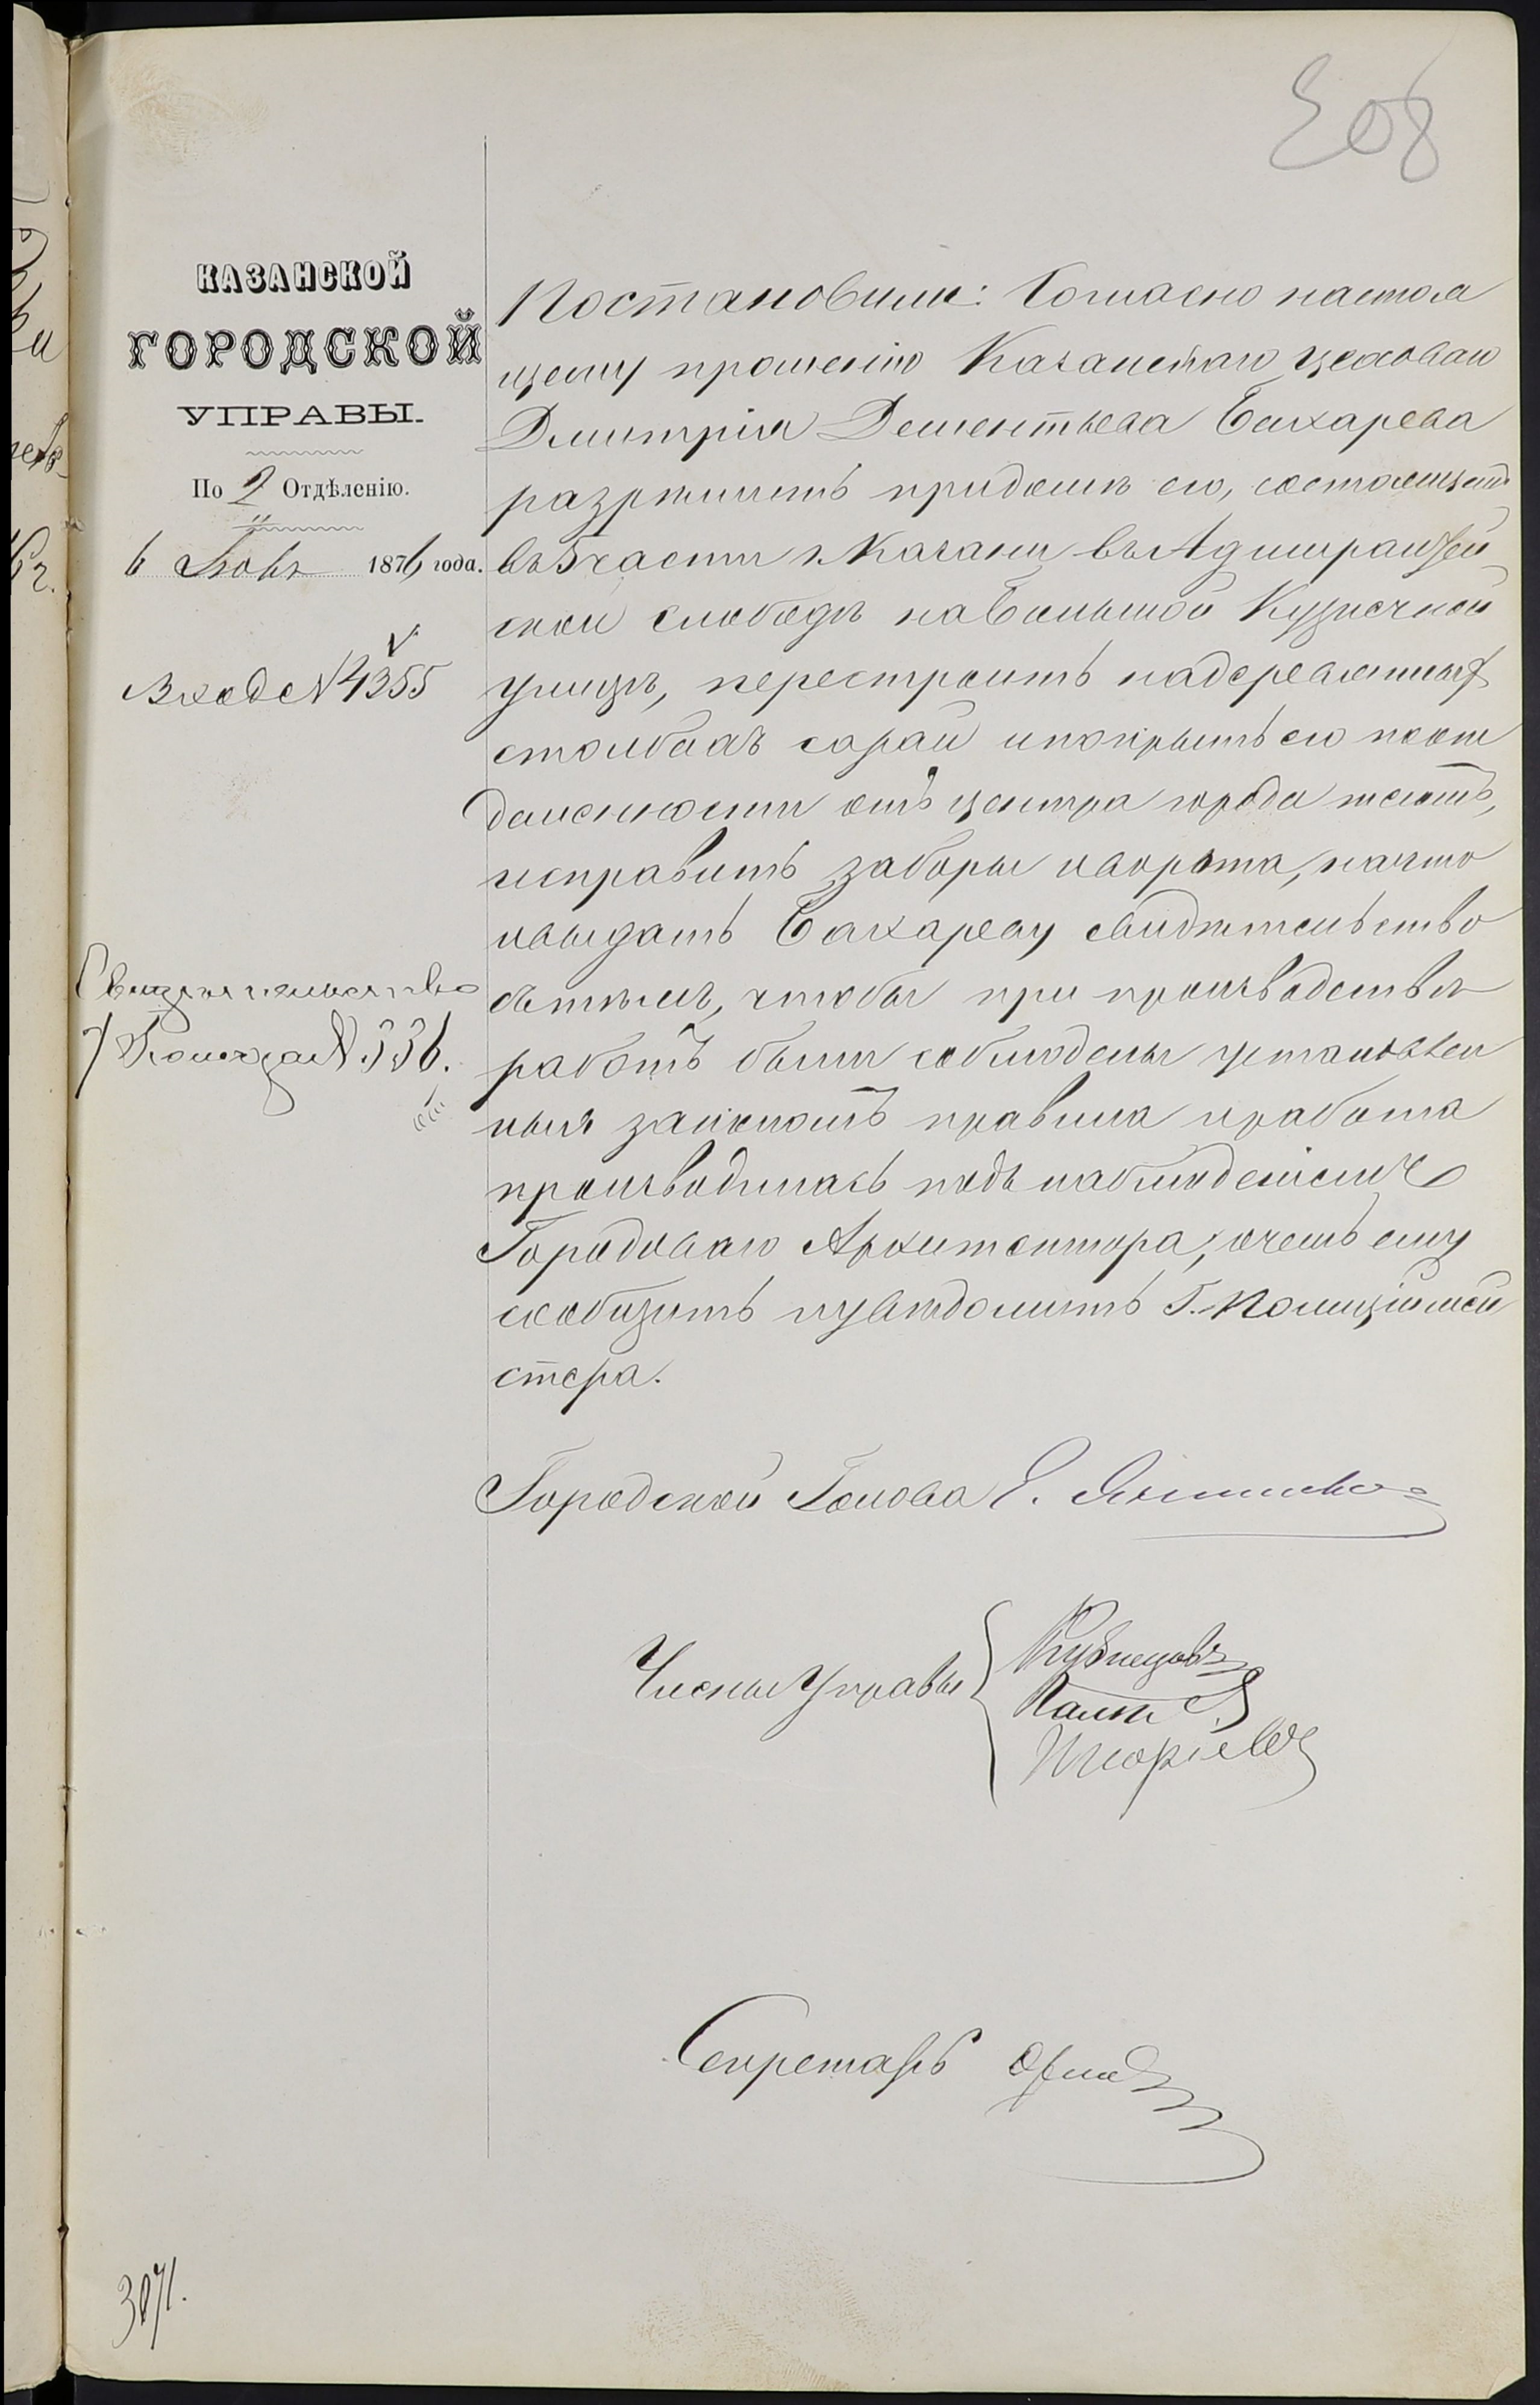 308
КАЗАНСКОЙ
ГОРОДСКОЙ
УПРАВЫ.
По 2 Отдѣленію.
6 Іюля 1876 года.
Вход № 4355
Свидѣтельство
7 Іюля за № 336.
Постановили: Согласно настоя
щему прошенію Казанскаго цеховаго
Дмитрія Дементьева Бахарева
разрѣшить при домѣ его, состоящемъ
въ 5 части г. Казани въ Адмиралтей
ской слободѣ на Большой Кузнечной
улицѣ, перестроить на деревянныхъ
столбахъ сарай и покрыть его по от
даленности отъ центра города тесомъ,
исправить заборы и ворота, на что
и выдать Бахареву свидѣтельство
съ тѣмъ, чтобы при производствѣ
работъ были соблюдены установлен
ныя закономъ правила и работа
производилась подъ наблюденіемъ
Городоваго Архитектора, о чемъ ему
сообщить и увѣдомить Г. Полиціймей
стера.
Городской Голова Е.
Члены Управы
Кузнецовъ
Секретарь
3071.